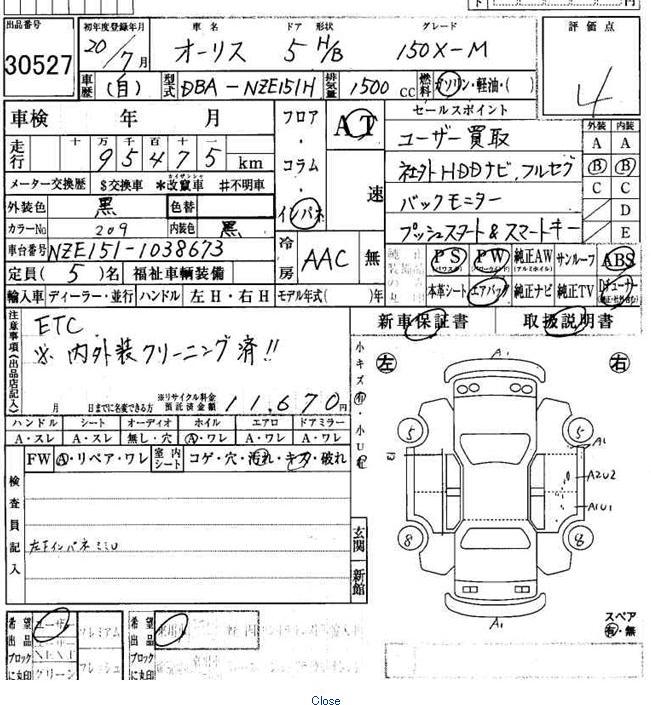 出品番号 初年度登録年月 車名 ドア 形状 グレード 評価点
30527 20/7月 オーリス 5 H/B 150X-M 4
車歴 (自) 型式 DBA-NZE151H 排気量 1500cc 燃料 ガソリン・軽油・( )
車検 年 月 フロア・コラム・インパネ AT セールスポイント
外装 内装
走行 十 万 千 百 十 一
95475 km
速
ユーザー買取
社外HDDナビ,フルセグ
バックモニター
プッシュスタート&スマートキー
A A
B B
C C
D
E
メーター交換歴 $交換車 *改竄車 #不明車
外装色 黒 色替
カラーNo 209 内装色 黒
車台番号 NZE151-1038673
冷房 AAC 無
定員(5)名 福祉車輌装備
PS PW 純正AW サンルーフ ABS
(パワステ) (パワーウインド) (アルミホイル)
本革シート エアバック 純正ナビ 純正TV Dチューナー
輸入車 ディーラー・並行 ハンドル 左H・右H モデル年式( )年
新車保証書 取扱説明書
注意事項(出品店記入)
ETC
※ 内外装クリーニング済!!
月 日までに名変できる方
※リサイクル料金
預託済金額 11,670円
小キズ有・小U有
ハンドル シート オーディオ ホイル エアロ ドアミラー
A・スレ A・スレ 無し・穴 A・ワレ A・ワレ A・ワレ
FW A・リペア・ワレ 室内シート コゲ・穴・汚れ・キズ・破れ
検査員記入
左下インパネミミU
玄関
新館
左 右
A1
5 5
A1
A2U2
A1U1
8 8
A1
スペア
有・無
希望出品ブロックに丸印 ユーザー プレミアム
NEXT
グリーン フレッシュ
希望出品ブロックに丸印
Close